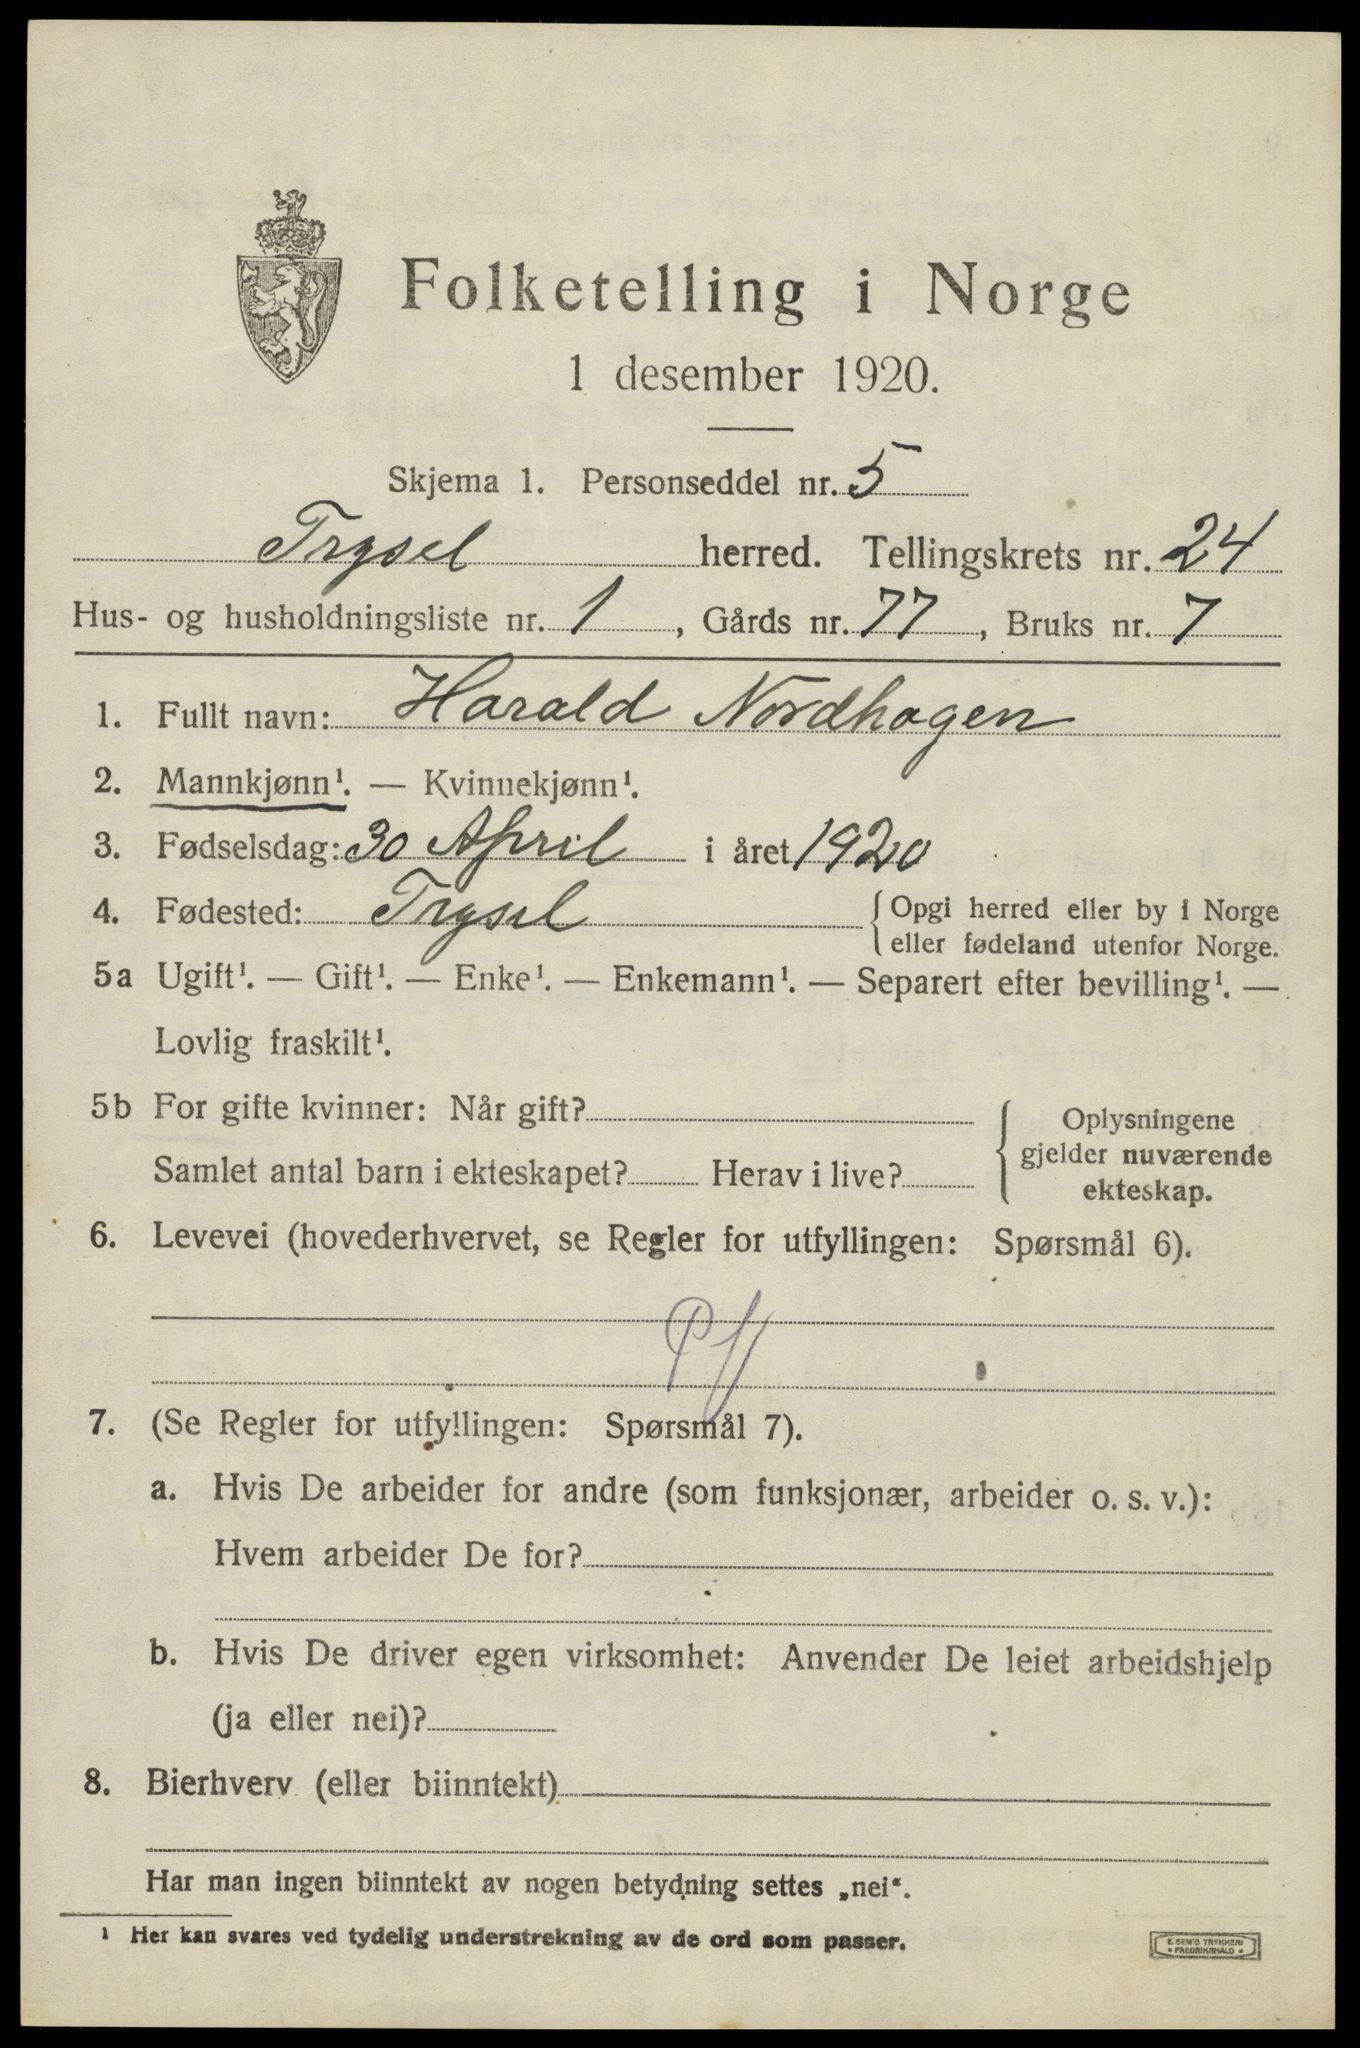 Folketelling i Norge
1 desember 1920.
Skjema 1. Personseddel nr. 5
Trysel herred. Tellingskrets nr. 24
Hus- og husholdningsliste nr. 1, Gårds nr. 77, Bruks nr. 7
1. Fullt navn: Harald Nordhagen
2. Mannkjønn¹. — Kvinnekjønn¹.
3. Fødselsdag: 30 April i året 1920
4. Fødested: Trysel { Opgi herred eller by i Norge
eller fødeland utenfor Norge.
5a Ugift¹. — Gift¹. — Enke¹. — Enkemann¹. — Separert efter bevilling¹. —
Lovlig fraskilt¹.
5b For gifte kvinner: Når gift? { Oplysningene
gjelder nuværende
Samlet antal barn i ekteskapet? Herav i live?
ekteskap.
6. Levevei (hovederhvervet, se Regler for utfyllingen: Spørsmål 6).
7. (Se Regler for utfyllingen: Spørsmål 7).
a. Hvis De arbeider for andre (som funksjonær, arbeider o. s. v.):
Hvem arbeider De for?
b. Hvis De driver egen virksomhet: Anvender De leiet arbeidshjelp
(ja eller nei)?
8. Bierhverv (eller biinntekt)
Har man ingen biinntekt av nogen betydning settes „nei“.
¹ Her kan svares ved tydelig understrekning av de ord som passer.
E. SEM'S TRYKKERI
FREDRIKSHALD